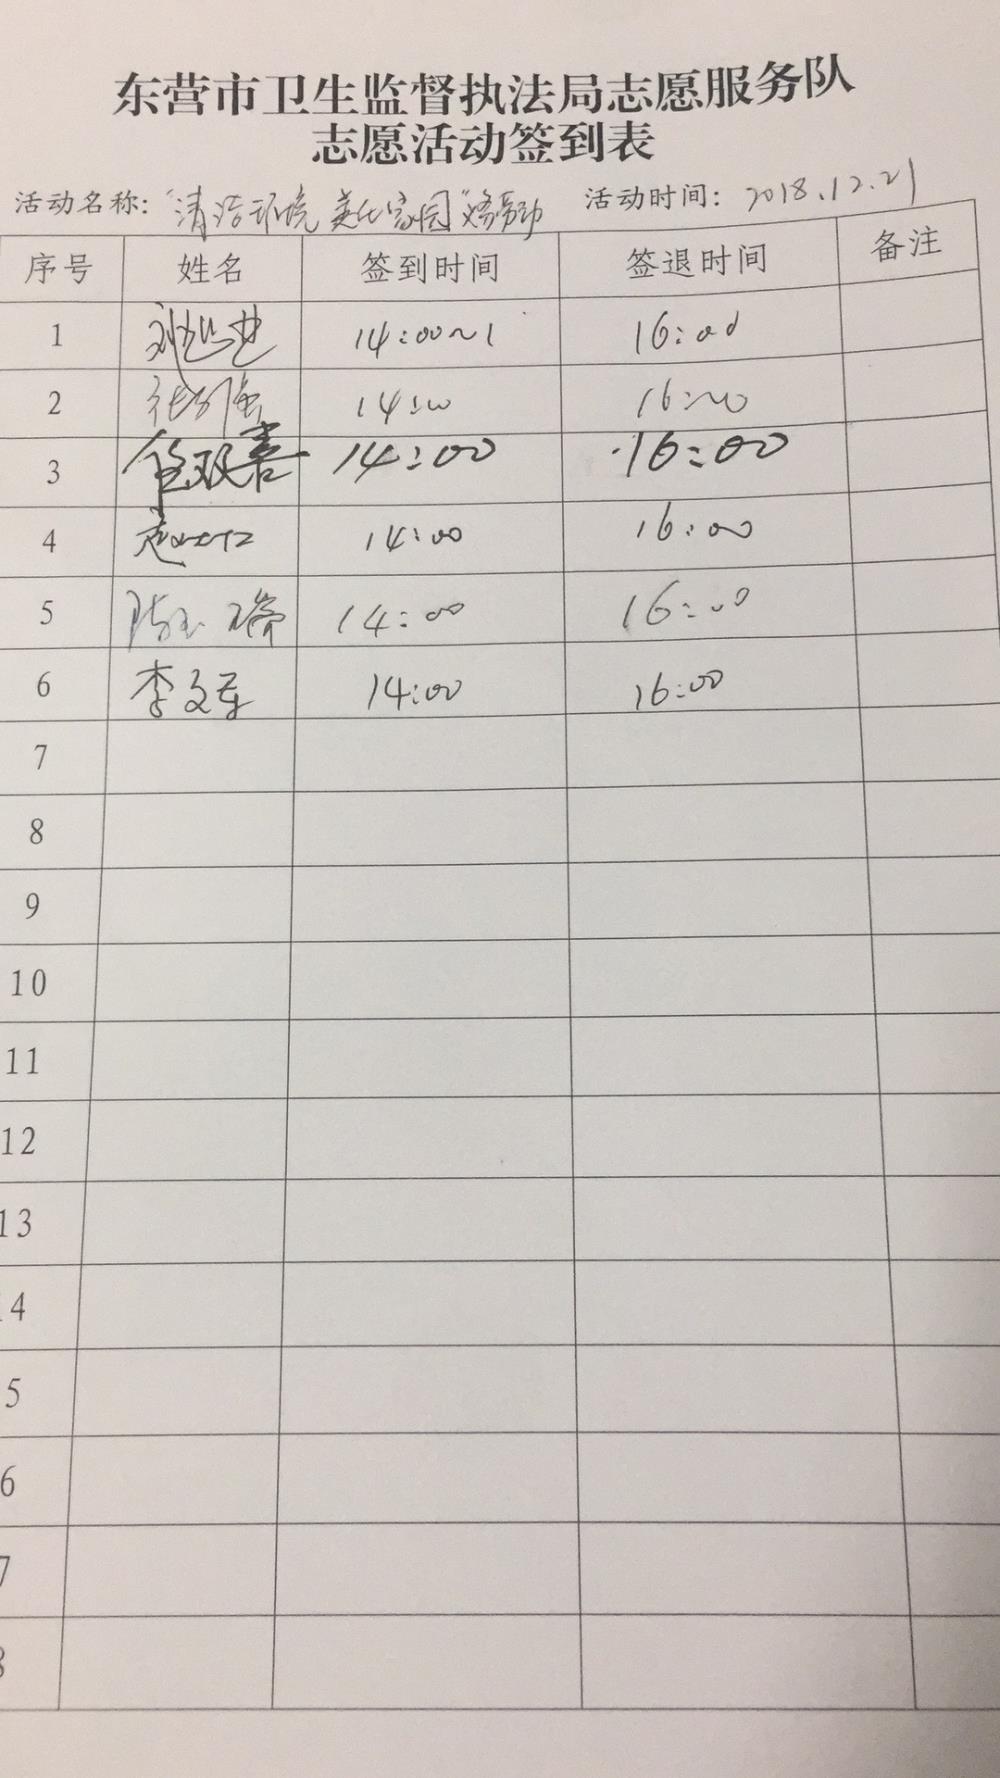 东营市卫生监督执法局志愿服务队
志愿活动签到表
活动名称："清洁环境 美化家园"义务劳动 活动时间：2018.12.21
序号 姓名 签到时间 签退时间 备注
1 14:00 16:00
2 14:00 16:00
3 任双喜 14:00 16:00
4 14:00 16:00
5 14:00 16:00
6 李文军 14:00 16:00
7
8
9
10
11
12
13
4
5
6
7
8